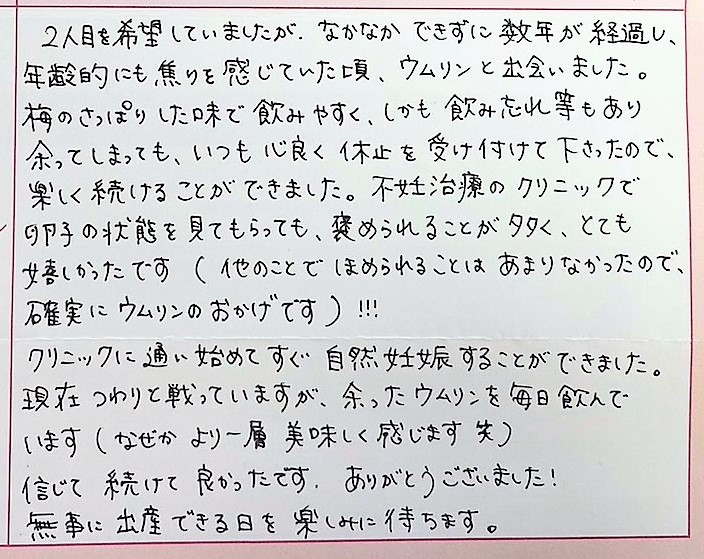 2人目を希望していましたが、なかなかできずに数年が経過し、
年齢的にも焦りを感じていた頃、ウムリンと出会いました。
梅のさっぱりした味で飲みやすく、しかも飲み忘れ等もあり
余ってしまっても、いつも心良く休止を受け付けて下さったので、
楽しく続けることができました。不妊治療のクリニックで
卵子の状態を見てもらっても、褒められることが多く、とても
嬉しかったです(他のことでほめられることはあまりなかったので、
確実にウムリンのおかげです)!!!
クリニックに通い始めてすぐ自然妊娠することができました。
現在つわりと戦っていますが、余ったウムリンを毎日飲んで
います(なぜかより一層美味しく感じます笑)
信じて続けて良かったです。ありがとうございました!
無事に出産できる日を楽しみに待ちます。